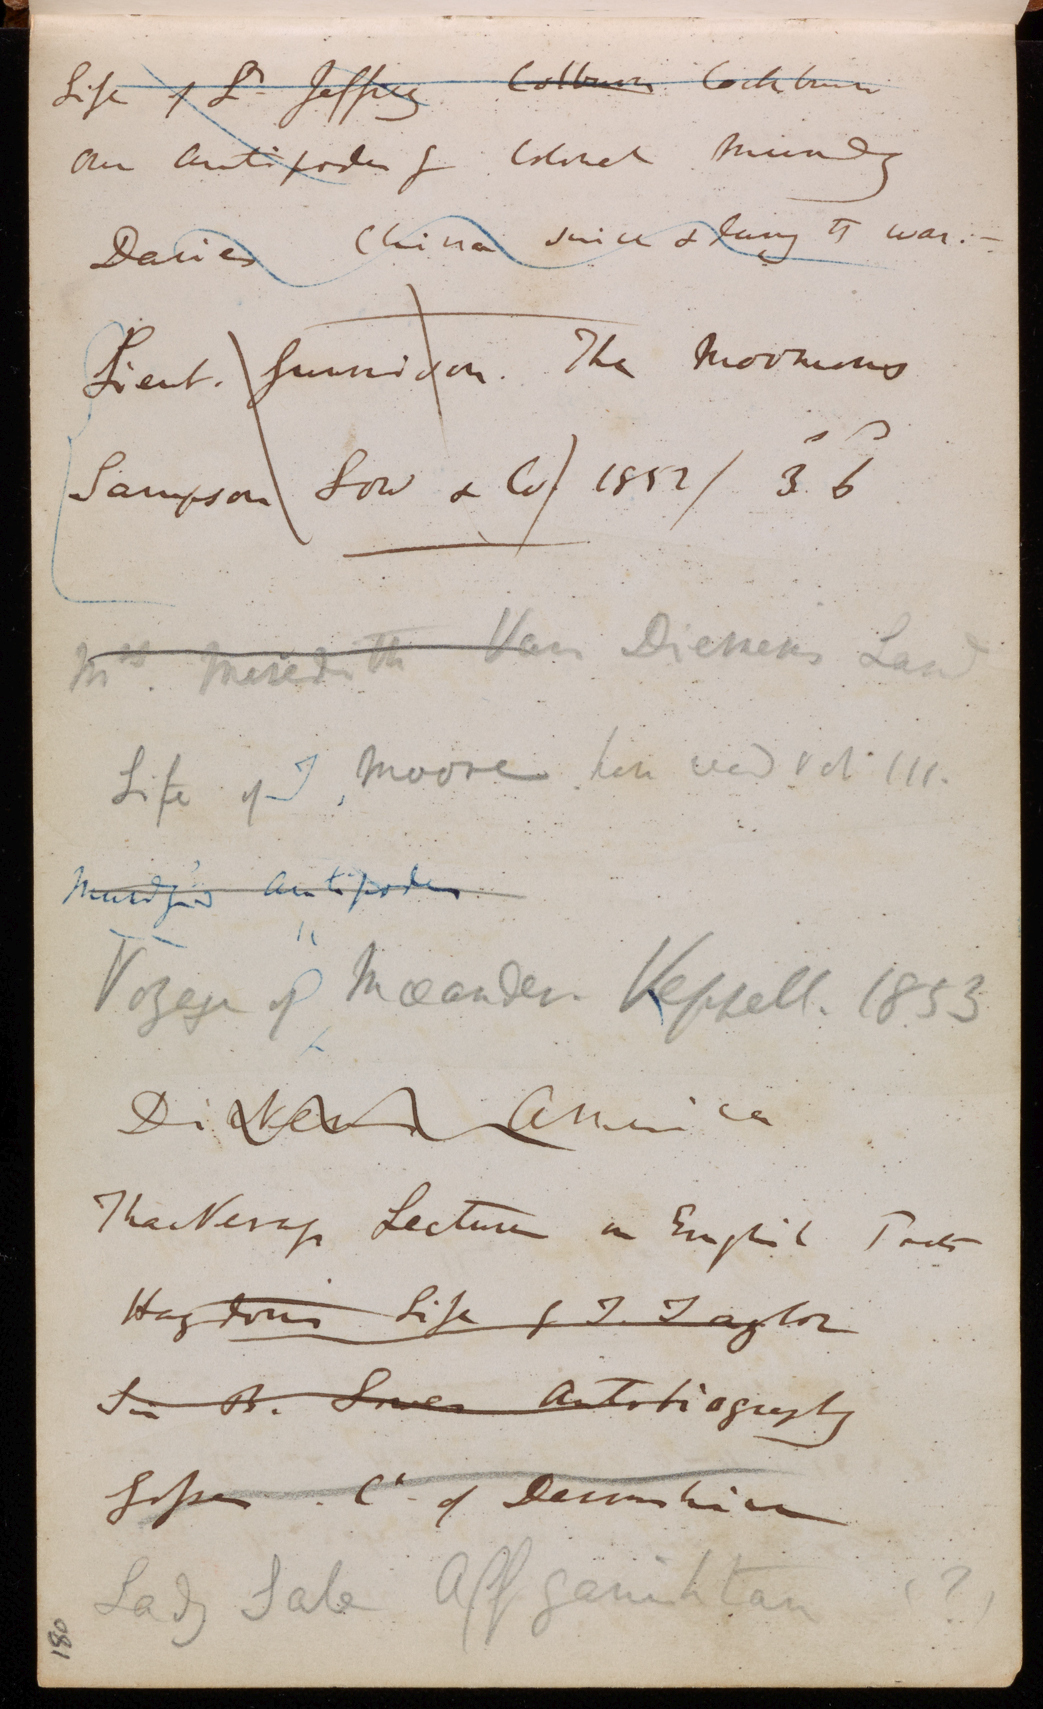 Life of Ld Jeffrey Colburn Cockburn
Our Antipodes by Colonel Mundy
Davies China since & during the war.—
Lieut. Gunnison. The Mormons
Sampson Low & Co/ 1852/ 3s 6d
Mrs. Meredith Van Diemens Land
Life of T, Moore have read vol III.
Mundy's Antipodes
Voyage of Mæander. Keppell. 1853
Dickens America
Thackerays Lectures on English Poets
Haydon's Life of T. Taylor
Sir B. Autobiography
C. of Devonshire
Lady Sale Affganishtan (?)
180